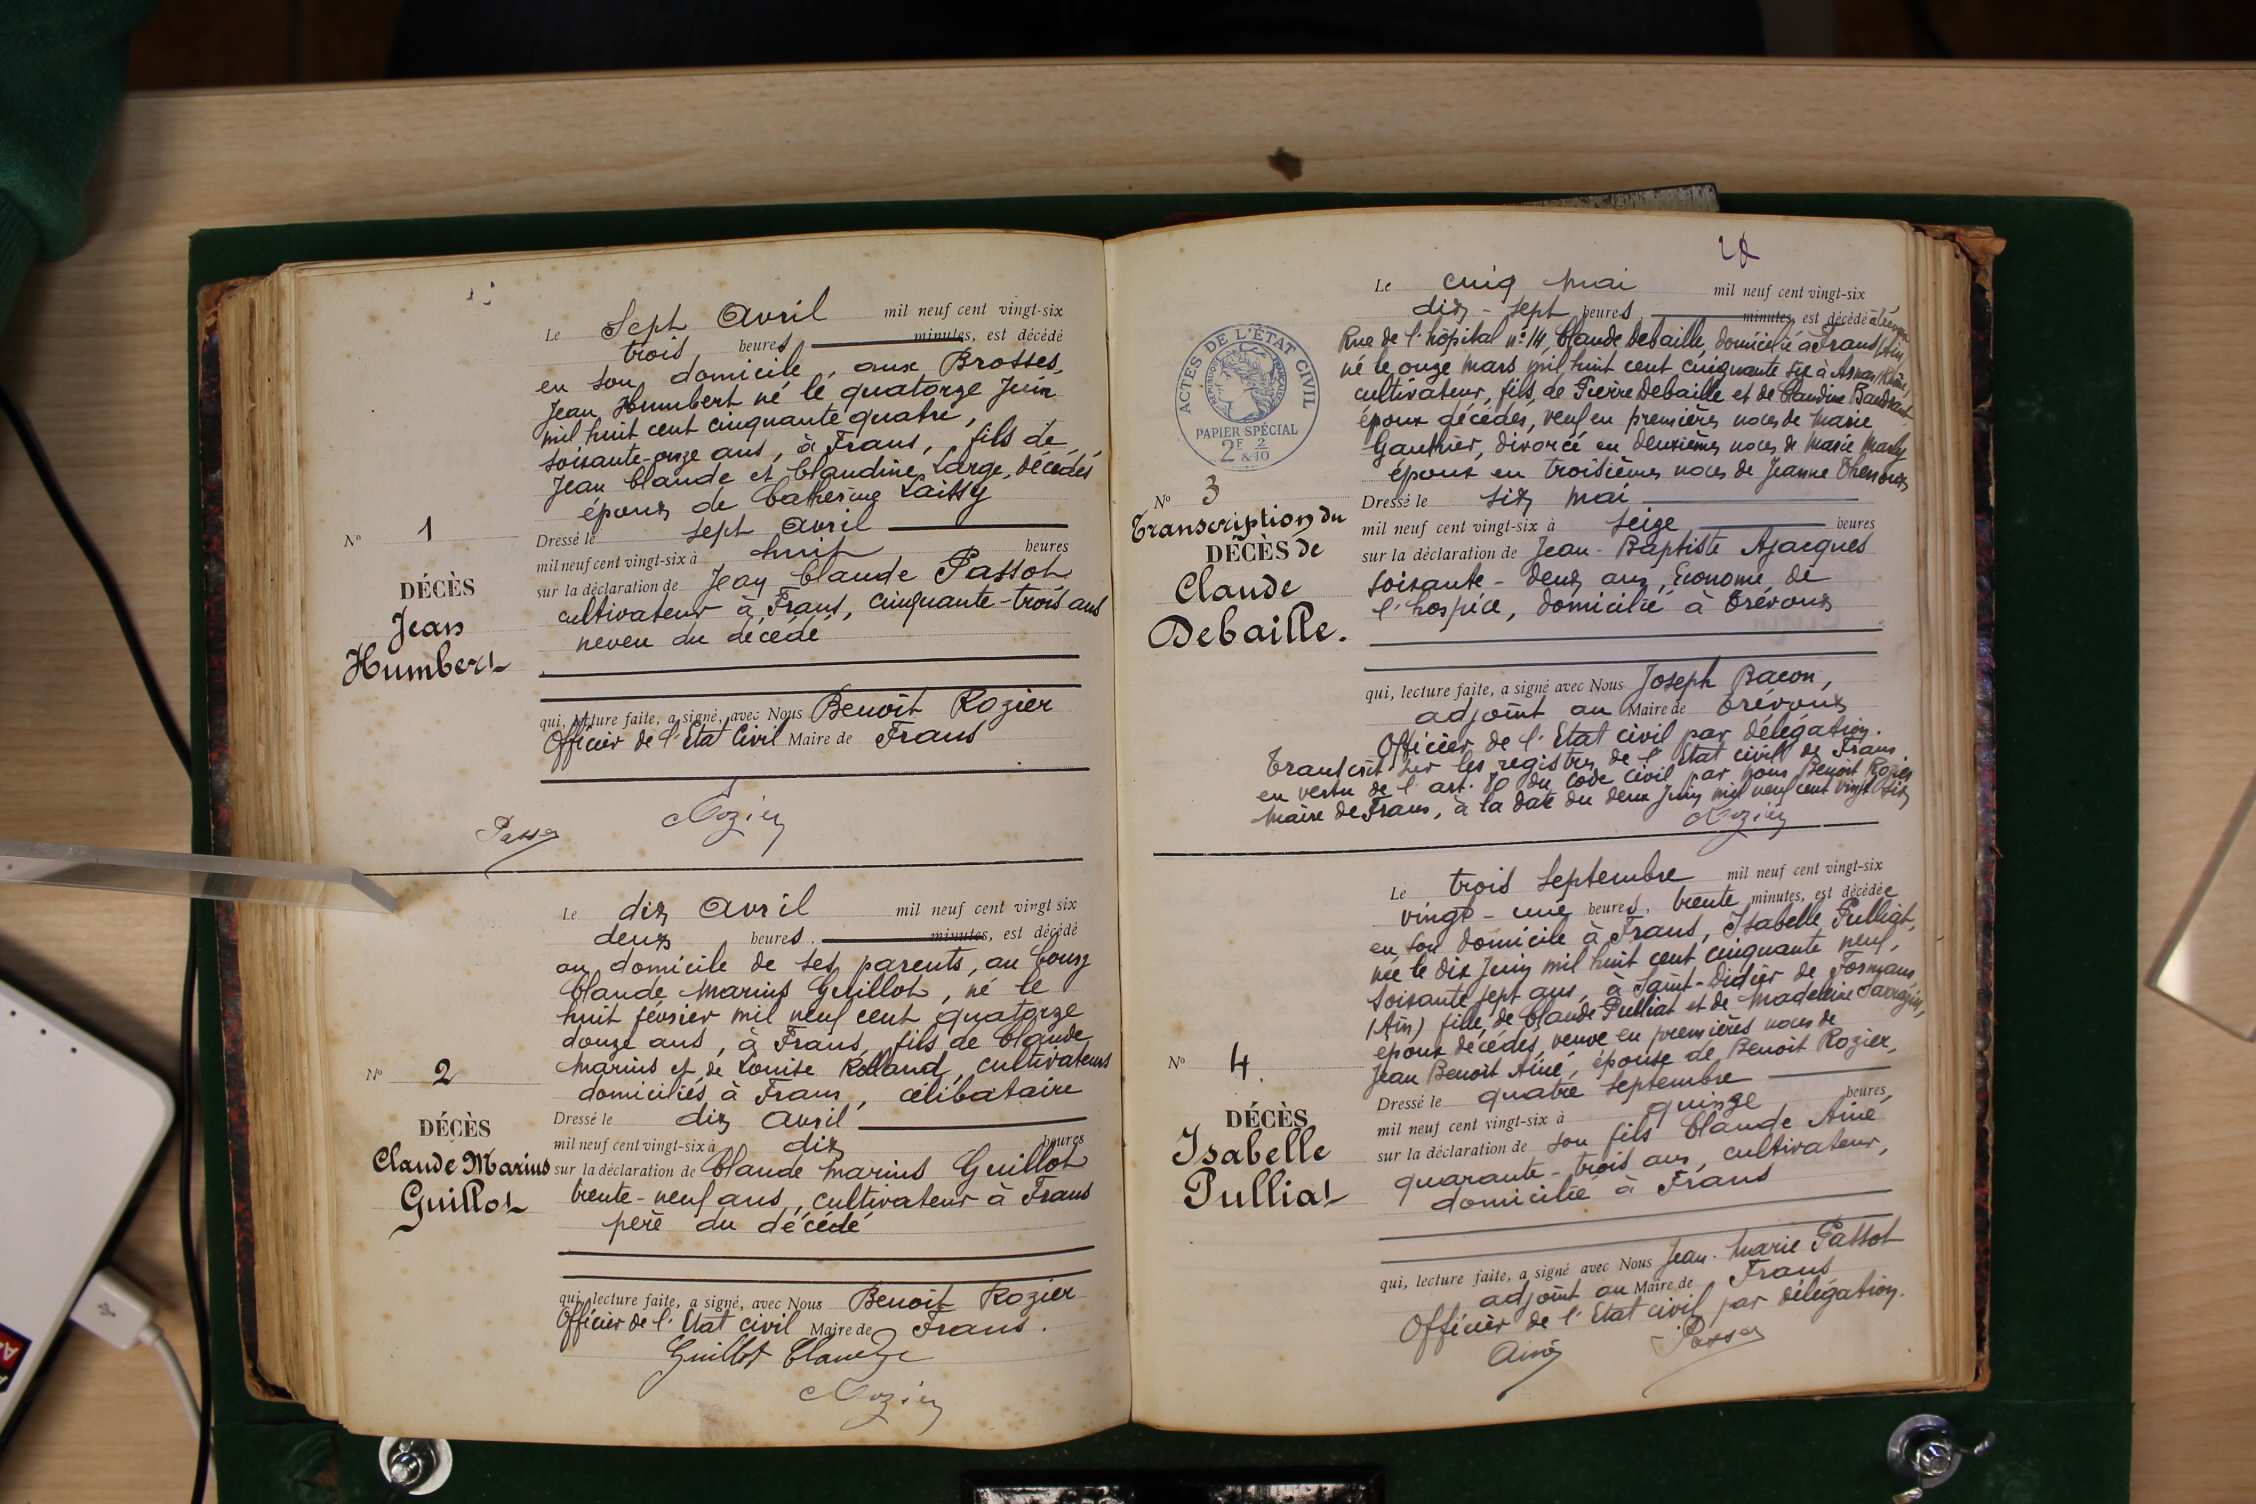 Le Sept Avril mil neuf cent vingt-six
trois heures minutes, est décédé
en son domicile, aux Brosses,
Jean Humbert né le quatorze Juin
mil huit cent cinquante quatre,
soixante-onze ans, à Frans, fils de
Jean Claude et Claudine Large, décédés
époux de Catherine Laissy
N° 1
DÉCÈS
Jean
Humbert
Dressé le sept Avril
mil neuf cent vingt-six à huit heures
sur la déclaration de Jean Claude Passot
cultivateur à Frans, cinquante-trois ans
neveu du décédé
qui, lecture faite, a signé, avec Nous Benoît Rozier
Officier de l'Etat Civil Maire de Frans
Passot Rozier
Le dix Avril mil neuf cent vingt six
deux heures minutes, est décédé
au domicile de ses parents, au bourg
Claude Marius Guillot, né le
huit février mil neuf cent quatorze
douze ans, à Frans, fils de Claude
Marius et de Louise Rolland, cultivateurs
domiciliés à Frans, célibataire
N° 2
DÉCÈS
Claude Marius
Guillot
Dressé le dix Avril
mil neuf cent vingt-six à dix heures
sur la déclaration de Claude Marius Guillot
trente-neuf ans, cultivateur à Frans
père du décédé
qui, lecture faite, a signé, avec Nous Benoit Rozier
Officier de l'Etat civil Maire de Frans.
Guillot Claude
Rozier
Le cinq Mai mil neuf cent vingt-six
dix-sept heures minutes, est décédé à Trévoux
Rue de l'hôpital n° 14, Claude Debaille, domicilié à Frans (Ain)
né le onze mars mil huit cent cinquante six à Arnas (Rhône)
cultivateur, fils de Pierre Debaille et de Claudine
époux décédés, veuf en premières noces de Marie
Gauthier, divorcé en deuxièmes noces de Marie
époux en troisièmes noces de Jeanne
ACTES DE L'ÉTAT CIVIL
RÉPUBLIQUE FRANÇAISE
PAPIER SPÉCIAL
2F & 2/10
N° 3
Transcription du
DÉCÈS de
Claude
Debaille.
Dressé le six mai
mil neuf cent vingt-six à seize heures
sur la déclaration de Jean-Baptiste Ajacques
soixante-deux ans, Econome de
l'hospice, domicilié à Trévoux
qui, lecture faite, a signé avec Nous Joseph Bacon,
adjoint au Maire de Trévoux
Officier de l'Etat civil par délégation.
Transcrit sur les registres de l'Etat civil de Frans
en vertu de l'art. 80 du Code civil par nous Benoit Rozier
Maire de Frans, à la date du deux Juin mil neuf cent vingt six
Rozier
Le trois Septembre mil neuf cent vingt-six
vingt-une heures, trente minutes, est décédée
en son domicile à Frans, Isabelle Pulliat,
née le dix Juin mil huit cent cinquante neuf,
soixante sept ans, à Saint-Didier de Formans
(Ain) fille de Claude Pulliat et de Madeleine Sarrazin,
époux décédés, veuve en premières noces de
Jean Benoit Ainé, épouse de Benoit Rozier,
N° 4.
DÉCÈS
Isabelle
Pulliat
Dressé le quatre Septembre
mil neuf cent vingt-six à quinze heures,
sur la déclaration de son fils Claude Ainé
quarante-trois ans, cultivateur,
domicilié à Frans
qui, lecture faite, a signé avec Nous Jean-Marie Passot
adjoint au Maire de Frans
Officier de l'Etat civil par délégation.
Ainé Passot